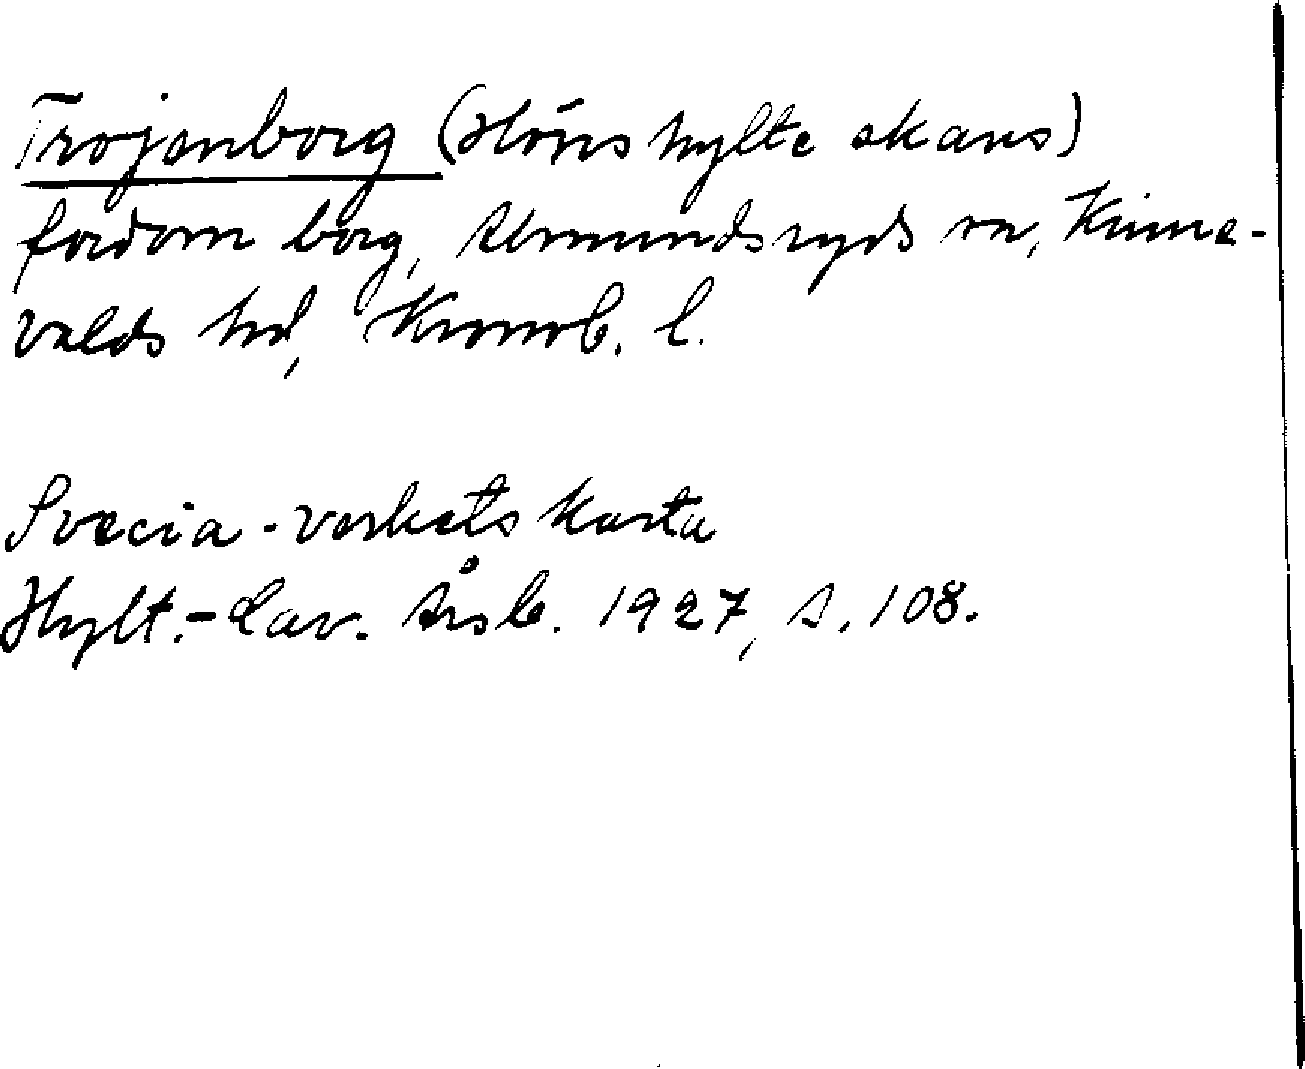 Trojenborg (Höns hylte skans)
fordom borg, Almundsryds sn, Kinne-
valds hd, Kronob. l.
Svecia-verkets karta
Hylt.-Cav. Årsb. 1927, s. 108.